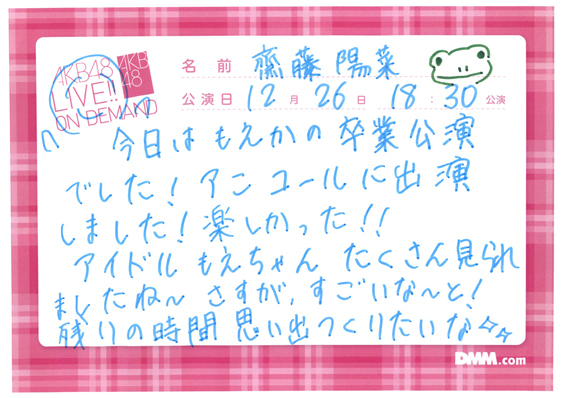 AKB48
LIVE!!
ON DEMAND
AKB
48
名前 齋藤陽菜
公演日 12月26日 18:30公演
今日はもえかの卒業公演
でした！アンコールに出演
しました！楽しかった！！
アイドルもえちゃん たくさん見られ
ましたね〜 さすが、すごいな〜と！
残りの時間 思い出つくりたいな☆☆
DMM.com